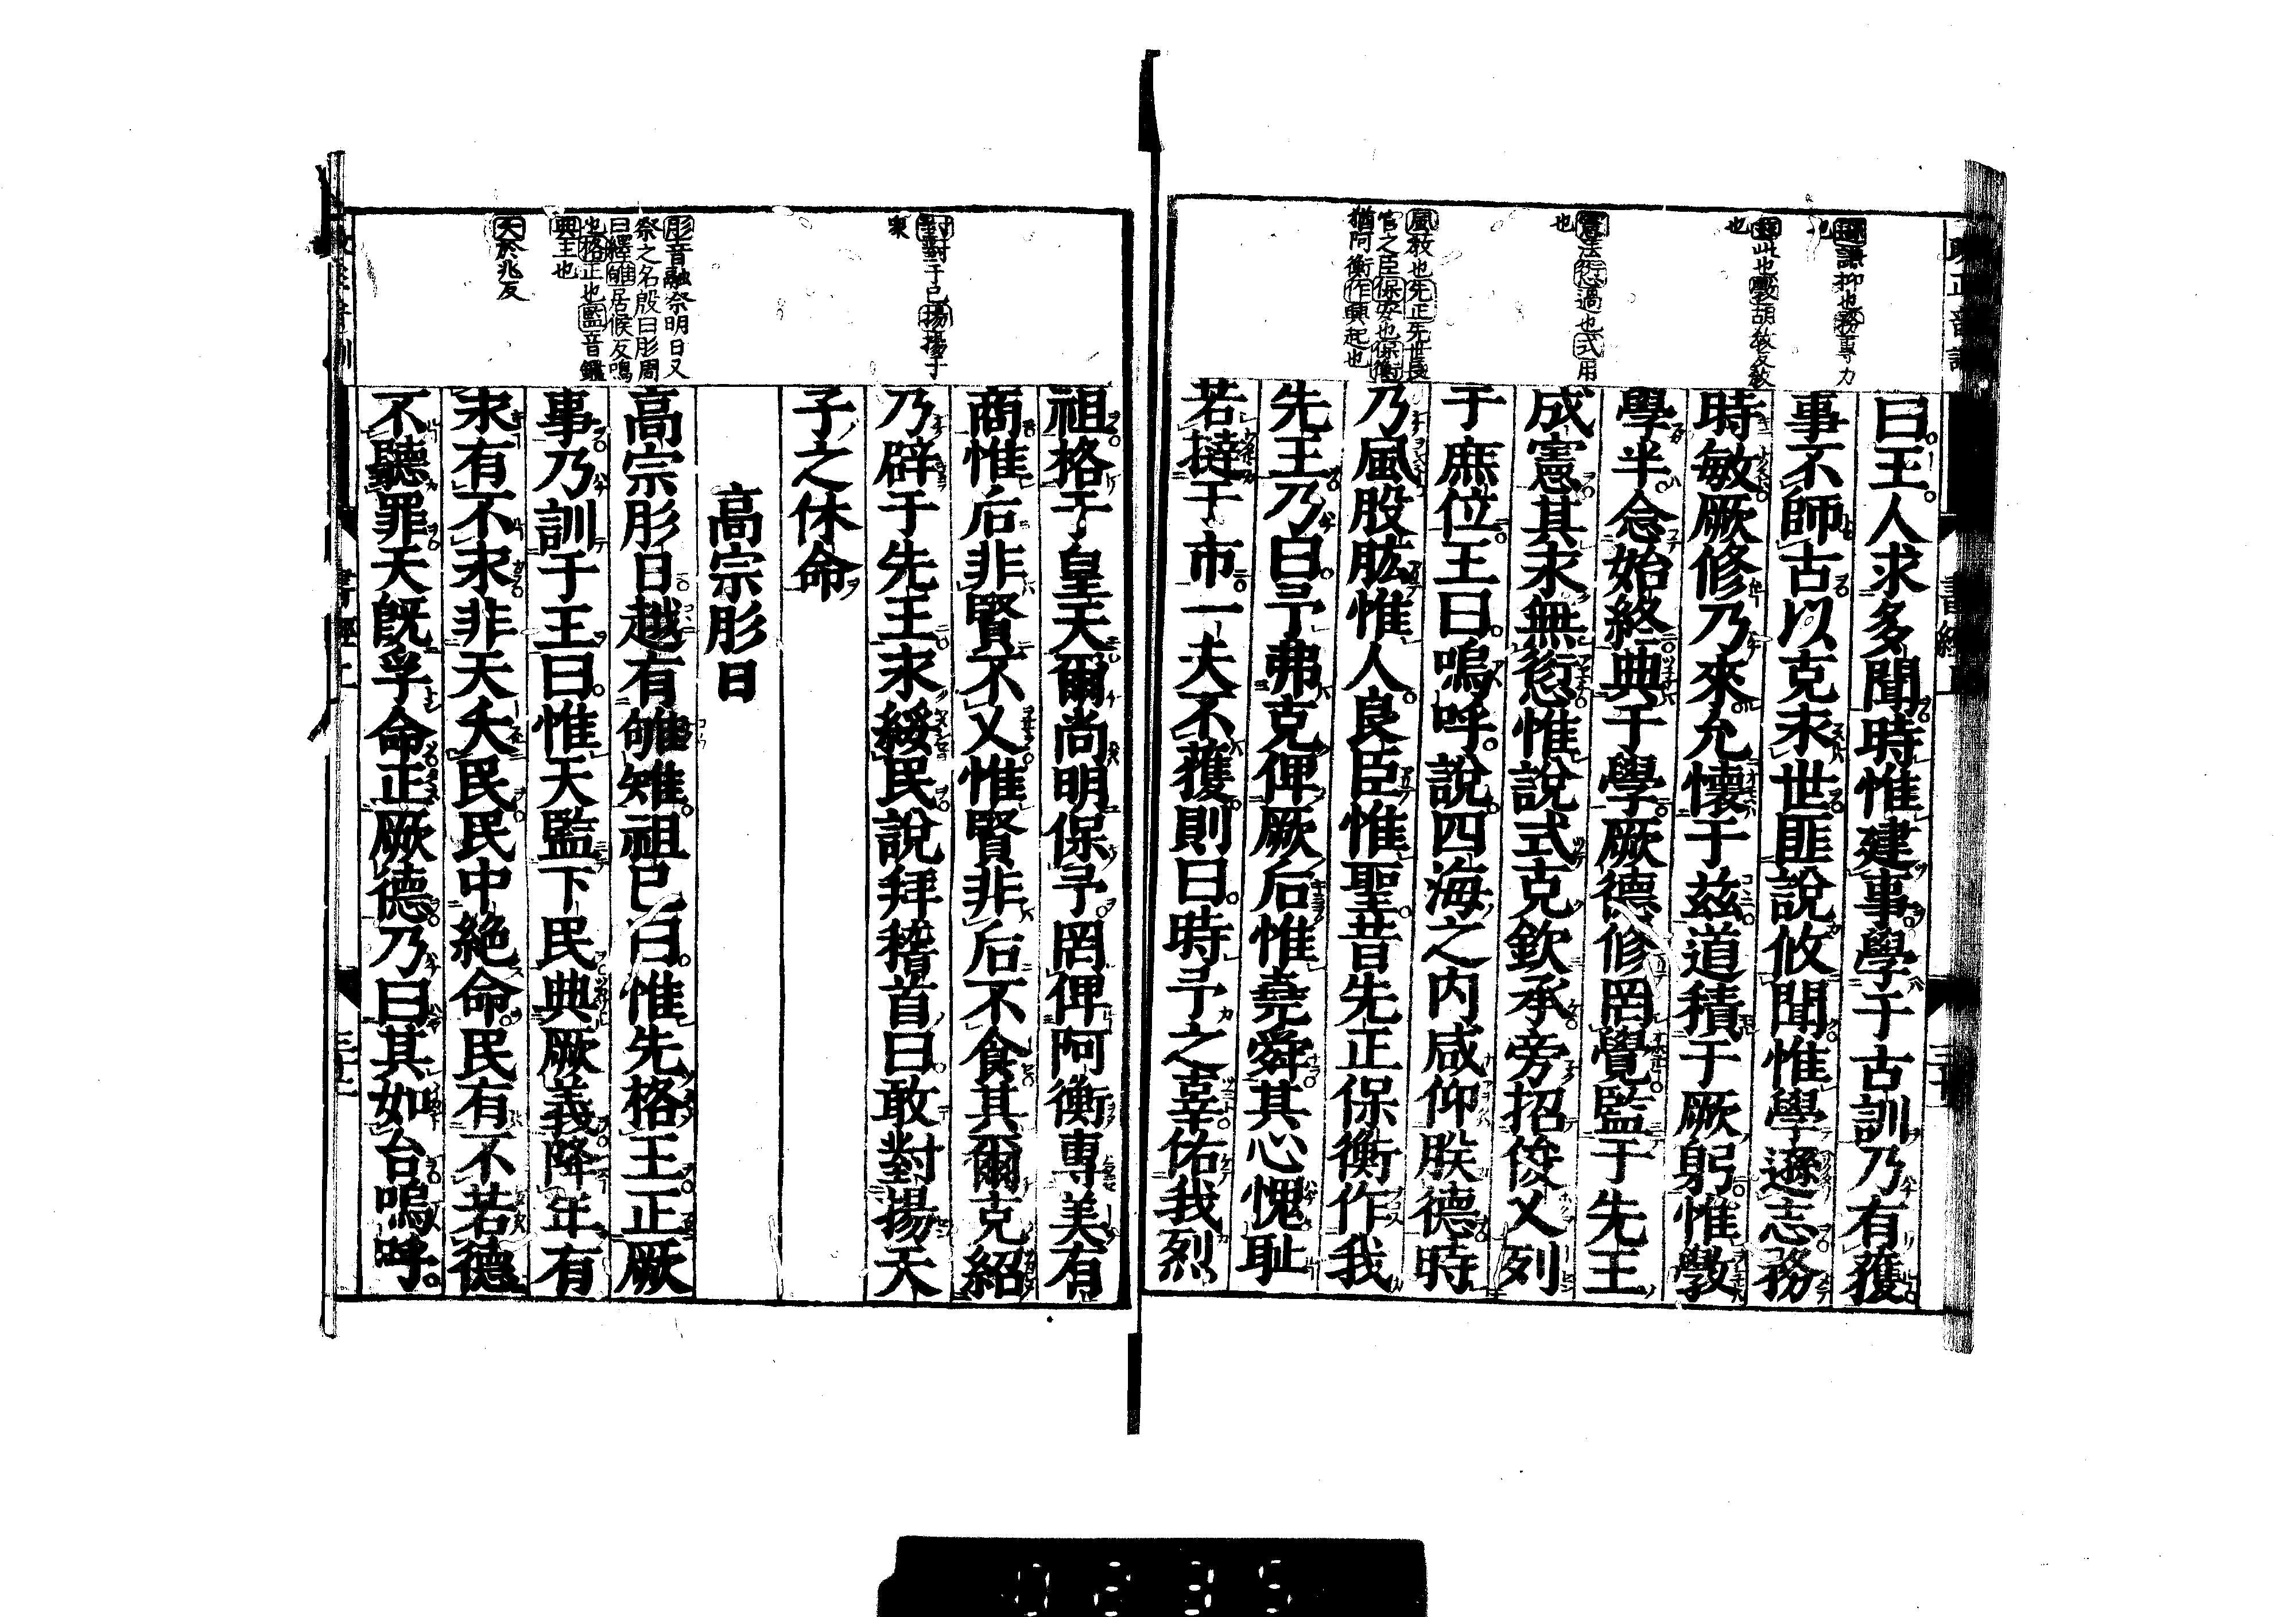 遜謙抑也務專力
也
此也斆胡教反教
也
憲法愆過也式用
也
風教也先正先世長
官之臣保安也保衡
猶阿衡作興起也
曰王人求多聞時惟建事學于古訓乃有獲
事不師古以克永世匪說攸聞惟學遜志務
時敏厥修乃來允懷于茲道積于厥躬惟斆
學半念始終典于學厥德修罔覺監于先王
成憲其永無愆惟說式克欽承旁招俊乂列
于庶位王曰嗚呼說四海之内咸仰朕德時
乃風股肱惟人良臣惟聖昔先正保衡作我
先王乃曰予弗克俾厥后惟堯舜其心愧恥
若撻于市一夫不獲則曰時予之辜佑我烈
對對于己揚揚于
衆
肜音融祭明日又
祭之名殷曰肜周
曰繹雊居候反鳴
也格正也監音鑑
典主也
夭於兆反
祖格于皇天爾尚明保予罔俾阿衡專美有
商惟后非賢不乂惟賢非后不食其爾克紹
乃辟于先王永綏民說拜稽首曰敢對揚天
子之休命
高宗肜日
高宗肜日越有雊雉祖己曰惟先格王正厥
事乃訓于王曰惟天監下民典厥義降年有
永有不永非天夭民民中絶命民有不若德
不聽罪天既孚命正厥德乃曰其如台嗚呼